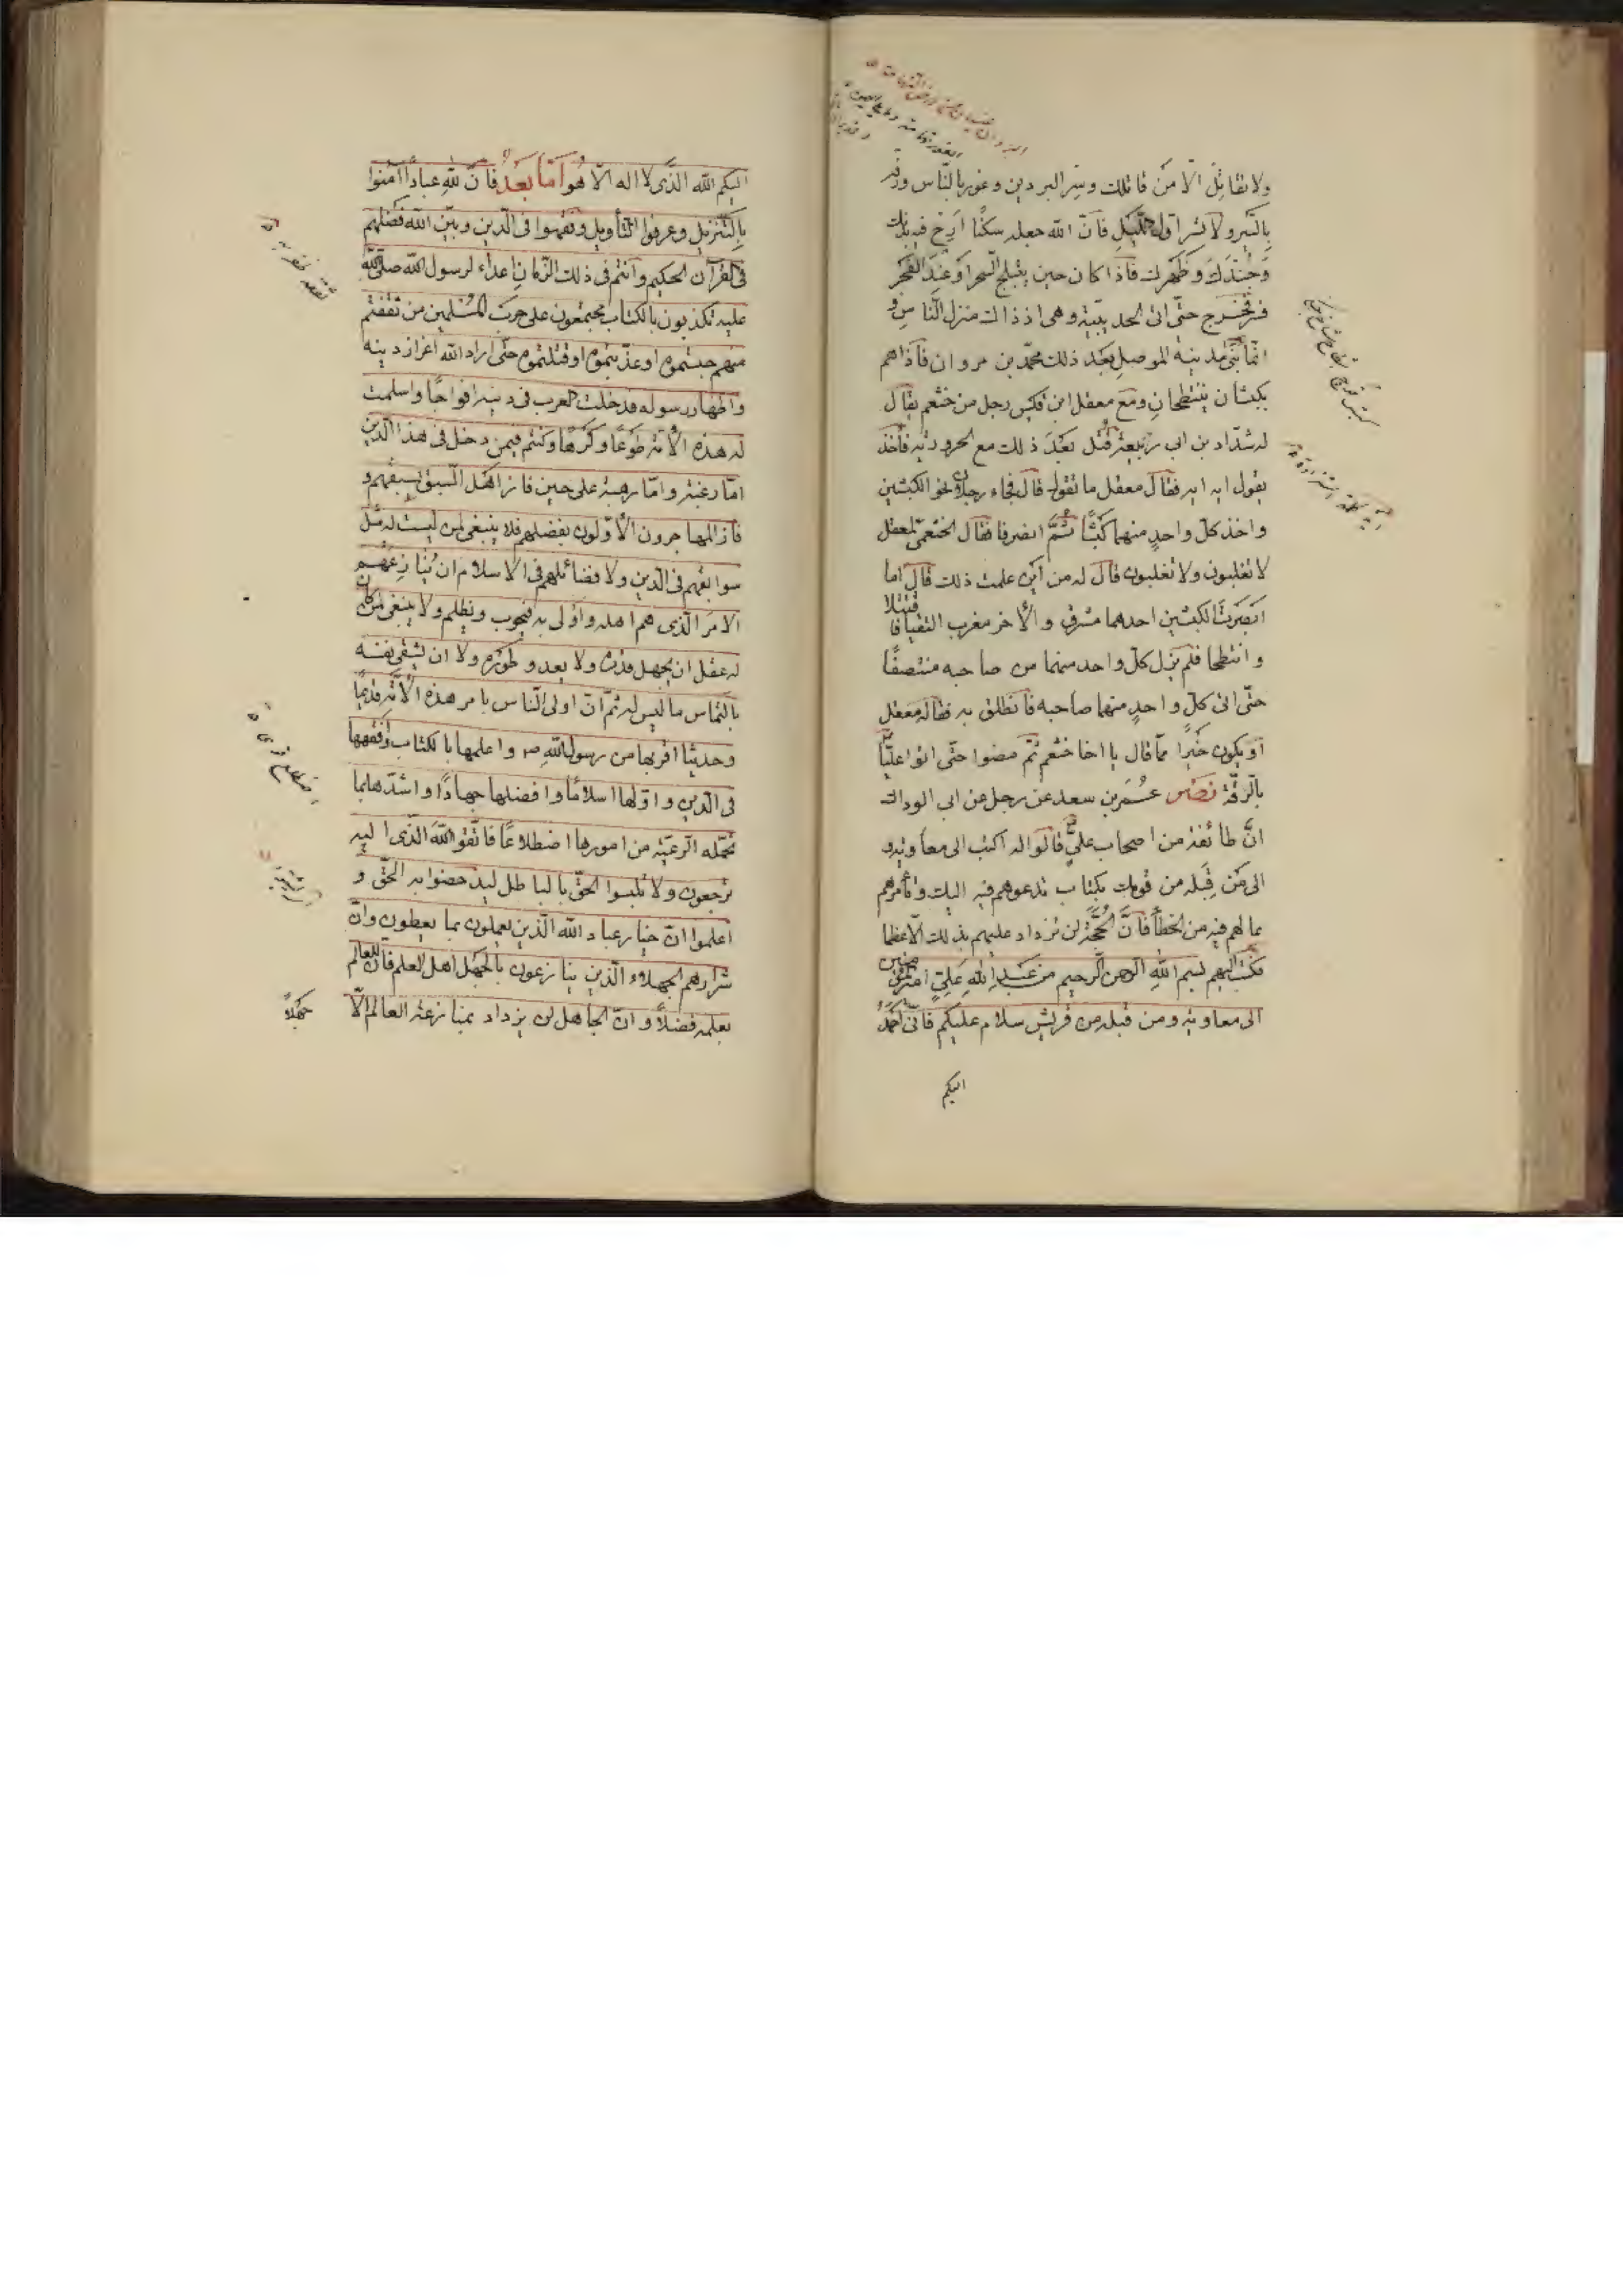 ولا تقاتل الا من قاتلك وسر البردين وغور بالناس ورفه
بالسير ولا تسر اول الليل فانّ الله جعله سكنًا ارح فيه بدنك
وجندك وظهرك فاذا كان حين ينبطح السحر او عند الفجر
فسر فخرج حتّى اتى الحديبية وهى اذ ذاك منزل الناس و
انما بنى مدينة الموصل بعد ذلك محمّد بن مروان فاذاهم
بكبشان ينتطحان ومع معقل ابن قيس رجل من خثعم يقال
له شدّاد بن ابى ربيعة قتل بعد ذلك مع الحرورية فاخذ
يقول ايه ايه فقال معقل ما تقول قال فجاء رجلان نحو الكبشين
واخذ كلّ واحدٍ منهما كبشًا ثُمَّ انصرفا فقال الخثعمى لمعقل
لا تغلبون ولا تغلبون قال له من اين علمت ذلك قال اما
ابصرت الكبشين احدهما مشرق والأخر مغرب التقيا فاقتتلا
وانتطحا فلم يزل كلّ واحد منهما من صاحبه منتصفًا
حتّى اتى كلّ واحدٍ منهما صاحبه فانطلق به فقال له معقل
او يكون خيرًا ممّا قال يا اخا خثعم ثمّ مضوا حتّى اتوا عليًّا
بالرقّة نصر عمر بن سعد عن رجل عن ابى الوداك
انّ طائفة من اصحاب علىٍّ قالوا له اكتب الى معاوية و
الى من قِبَله من قومك بكتاب تدعوهم فيه اليك وتأمرهم
بما لهم فيه من الخطأ فانَّ الحُجَّة لن تزداد عليهم بذلك الّا عظما
فكتب اليهم بسم اللهِ الرحمن الرحيم من عَبدِ اللهِ عَلِىٍّ امير المؤمنين
الى معاوية ومن قبله من قريش سلام عليكم فانّى احمدُ
اليكم
اليكم الله الذّى لا اله الّا هُو امّا بَعدُ فانّ للهِ عبادًا امنوا
بالتنزيل وعرفوا التأويل وتفقهوا فى الدّين وبيّن الله فضلهم
فى القرآن الحكيم وانتم فى ذلك الزّمانِ اعداء لرسول الله صلّى الله
عليه تكذبون بالكتاب مجتمعون على حرب المُسلمين من ثقفتم
منهم حبستموه او عذّبتموه او قتلتموه حتّى اراد الله اعزاز دينه
واظهار رسوله فدخلت العرب فى دينه افواجًا واسلمت
له هذه الأمّة طوعًا وكرهًا وكنتم فيمن دخل فى هذا الدّين
امّا رغبة وامّا رهبة على حين فاز اهل السّبق بسبقهم و
فاز المهاجرون الأوّلون بفضلهم فلا ينبغى لمن ليست له مثل
سوابقهم فى الدّين ولا فضائلهم فى الاسلام ان يُنازعَهُم
الامر الّذى هم اهله واولى به فيحوب ويظلم ولا ينبغى لمن كان
له عقل ان يجهل قدره ولا يعدو طوره ولا ان يشقى نفسه
بالتماس ما ليس له ثمّ انّ اولى النّاس بامر هذه الأمّة قديمًا
وحديثا اقربها من رسول اللهِ ص واعلمها بالكتاب وافقهها
فى الدّين واوّلها اسلامًا وافضلها جهادًا واشدّها بما
تحمّله الرّعيّة من امورها اضطلاعًا فاتّقوا اللهَ الّذى اليه
ترجعون ولا تلبسوا الحقّ بالباطل ليدحضوا به الحقّ و
اعلموا انّ خيار عباد الله الّذين يعملون بما يعطون وانّ
شرارهم الجهلاء الّذين ينازعون بالجهل اهل العلم فانّ للعالم
بعلمه فضلاً وانّ الجاهل لن يزداد بمنازعته العالم الّا
جهلاً